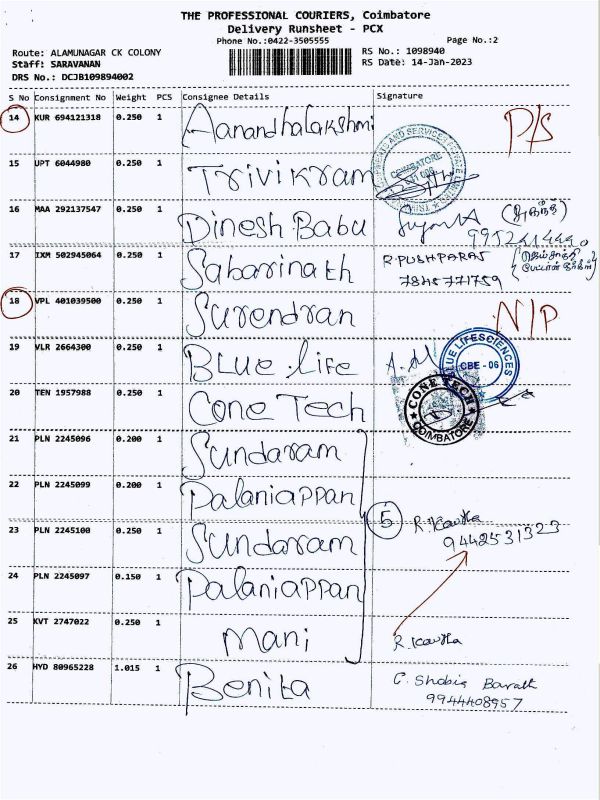 THE PROFESSIONAL COURIERS, Coimbatore
Delivery Runsheet - PCX
Phone No.:0422-3505555 Page No.:2
Route: ALAMUNAGAR CK COLONY RS No.: 1098940
Staff: SARAVANAN RS Date: 14-Jan-2023
DRS No.: DCJB109894002
S No Consignment No Weight PCS Consignee Details Signature
14 KUR 694121318 0.250 1 Aanandhalakshmi P/S
15 UPT 6044980 0.250 1 Trivikram COIMBATORE
16 MAA 292137547 0.250 1 Dinesh Babu
17 IXM 502945064 0.250 1 Sabarinath R.PUSHPARAJ
7845771759
18 VPL 401039500 0.250 1 Surendran N/P
19 VLR 2664300 0.250 1 BLUE.Life A.M BLUE LIFESCIENCES CBE - 06
20 TEN 1957988 0.250 1 Cone Tech CONE TECH COIMBATORE
21 PLN 2245096 0.200 1 Sundaram
22 PLN 2245099 0.200 1 Palaniappan 5 R.Kavitha
23 PLN 2245100 0.250 1 Sundaram 9442531323
24 PLN 2245097 0.150 1 Palaniappan
25 KVT 2747022 0.250 1 Mani R.Kavitha
26 HYD 80965228 1.015 1 Benita C. Shobia Barath
9944408957